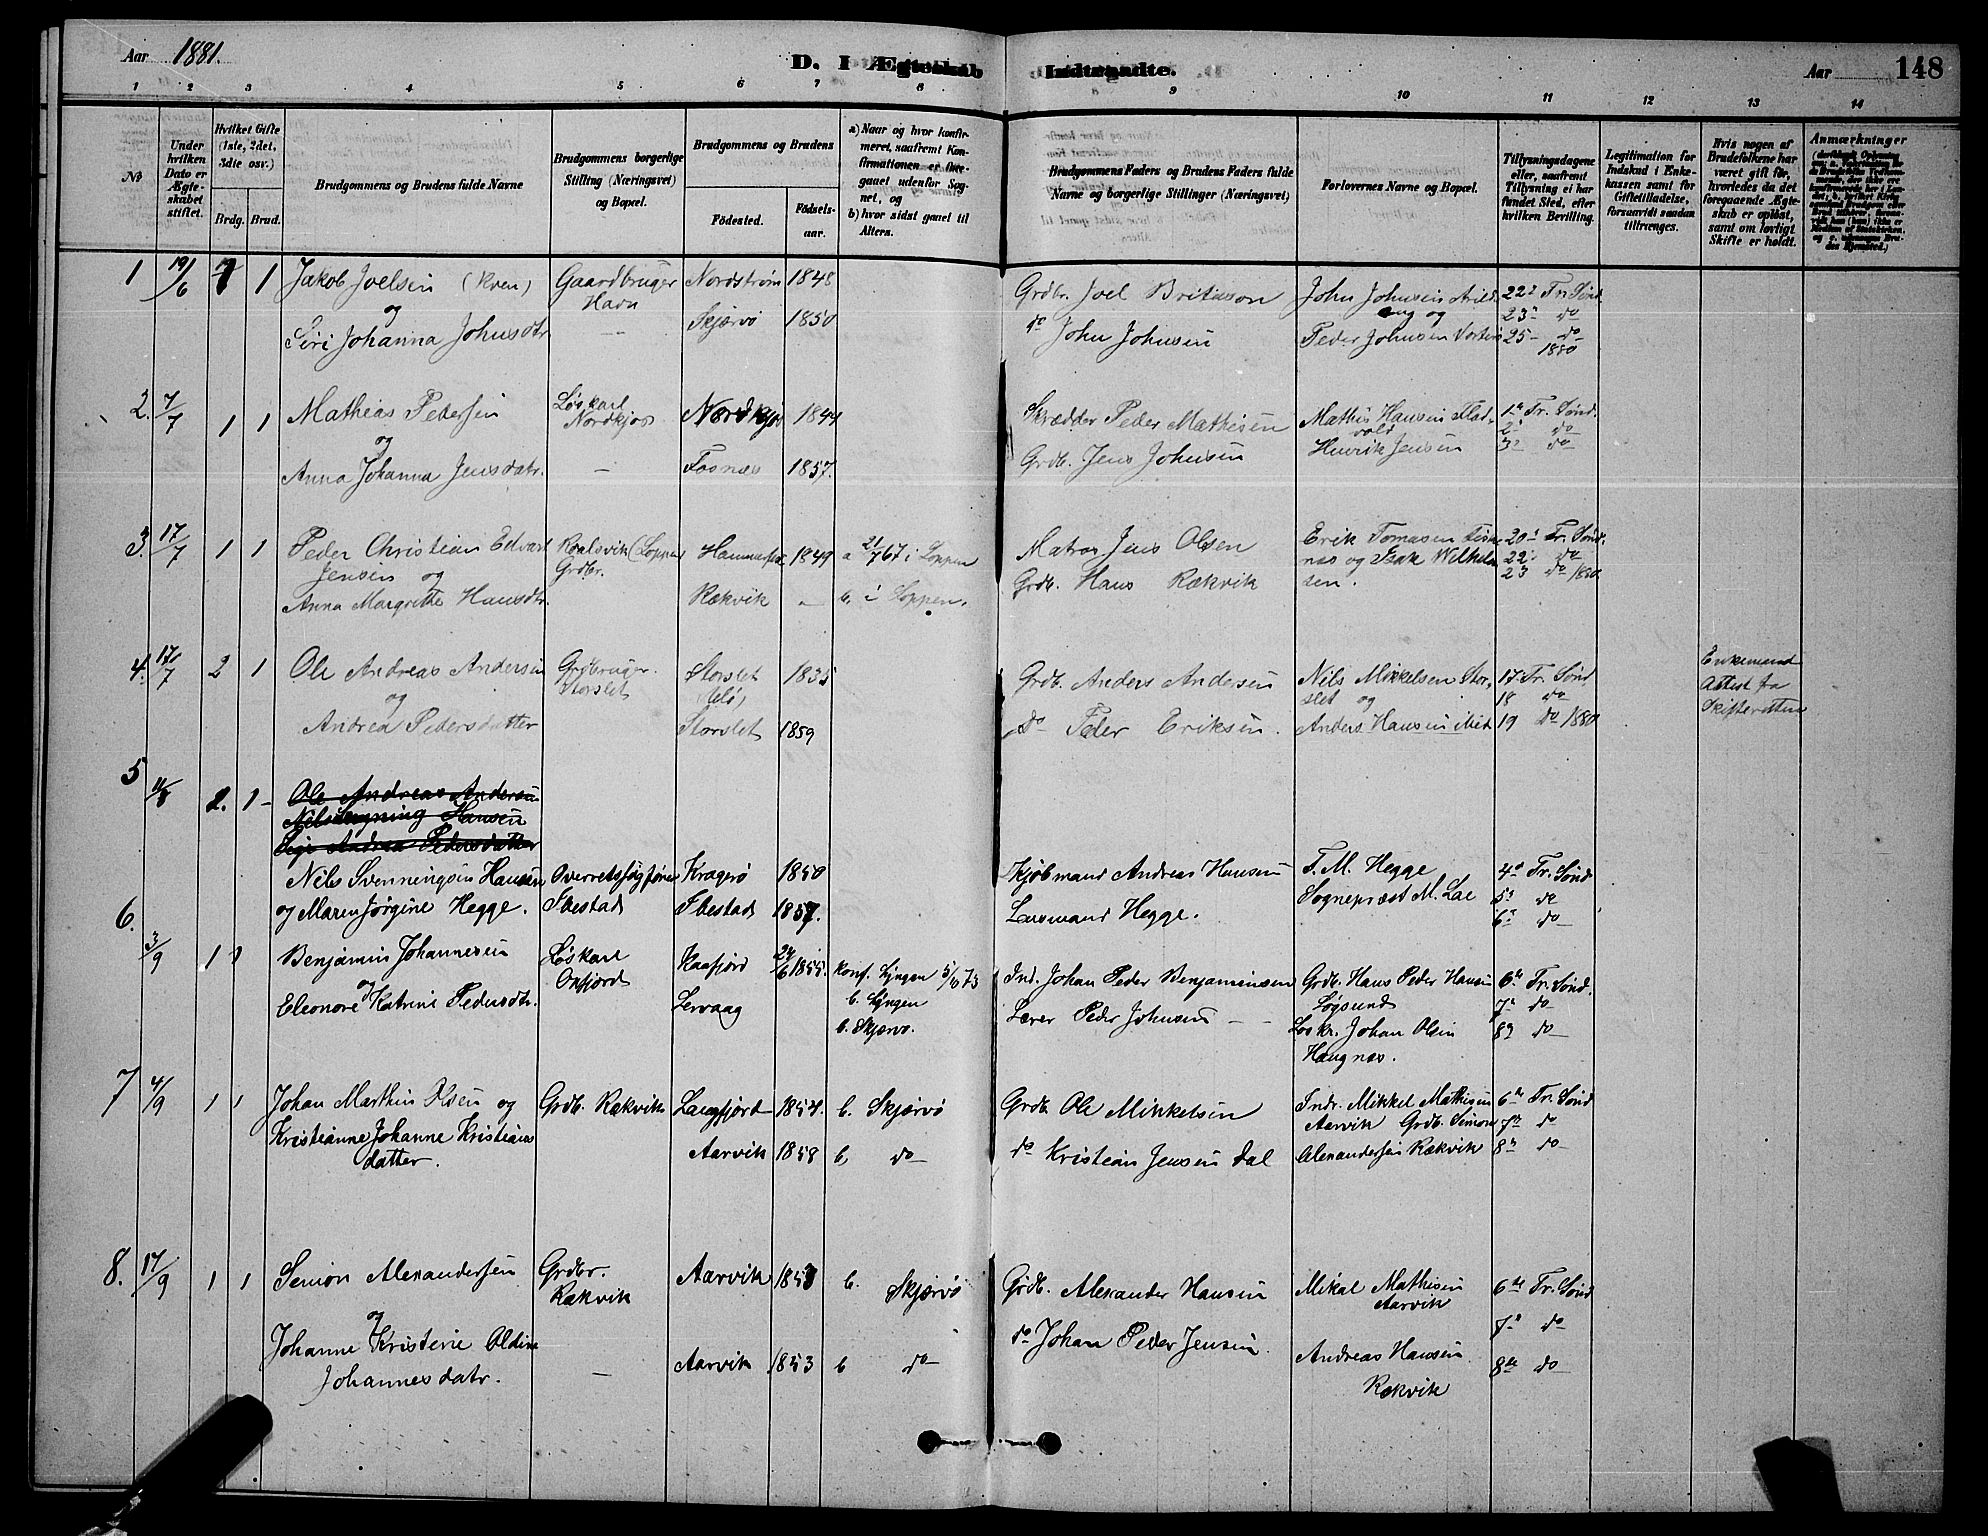 Aar 1881.
D. I Ægteskab Indtraadte.
Aar 148
1 2 3 4 5 6 7 8 9 10 11 12 13 14
No
Under hvilken Dato er Ægteskabet stiftet.
Hvilket Gifte (1ste, 2det, 3die osv.)
Brdg. Brud.
Brudgommens og Brudens fulde Navne
Brudgommens borgerlige Stilling (Næringsvei) og Bopæl.
Brudgommens og Brudens
Fødested. Fødselsaar.
a) Naar og hvor konfirmeret, saafremt Konfirmationen er foregaaet udenfor Sognet, og
b) hvor sidst gaaet til Alters.
Brudgommens Faders og Brudens Faders fulde Navne og borgerlige Stillinger (Næringsvei)
Forlovernes Navne og Bopæl.
Tillysningsdagene eller, saafremt Tillysning ei har fundet Sted, efter hvilken Bevilling.
Legitimation for Indskud i Enkekassen samt for Giftetilladelse, forsaavidt saadan tiltrænges.
Hvis nogen af Brudefolkene har været gift før, hvorledes da det foregaaende Ægteskab er opløst, samt om lovligt Skifte er holdt.
Anmærkninger
1 19/6 1 1 Jakob Joelsen (Kven) Gaardbruger Nordstrøm 1848 Grdbr. Joel Johnsen John Johnsen 22 Tr. Sønd.
og Havn 23 do
Siri Johanna Johnsdtr — Skjærvø 1850 do John Johnsen Peder Johnsen 25 do
1880
2. 7/7 1 1 Mathias Pedersen Løskarl Nordkjos 1844 Skrædder Peder Mathisen Mathis Hansen Flad- 1ste Tr. Sønd.
og Nordkjos vold 2 do
Anna Johanna Jensdatr. — Fosnæs 1857. Grdb. Jens Johnsen Henrik Jensen 3 do
3. 17/7 1 1 Peder Christian Edvart Roalsvik (Loppen) Hammerfest 1849 a 21/7 67 i Loppen Matros Jens Olsen Erik Tomasen 20 Tr. Sønd.
Jensen og Grdbr. næs og Isak Wilhelm 22 do
Anna Margrethe Hansdtr. Rækvik — b. i Loppen. Grdb. Hans Rækvik sen. 23 do 1880
4. 17/7 2 1 Ole Andreas Andersen Grdbruger. Storslet 1835 Grdb. Anders Andersen Nils Mikkelsen Stor- 17. Tr. Sønd. Enkemand
og Storslet (Uló) slet og 18 do Attest fra
Andrea Pedersdatter Storslet 1859 do Peder Eriksen. Anders Hansen ibid 19 do 1880 Skifteretten
5 11/8 2. 1 Ole Andreas Andersen
Nils Hansen
Andrea Pedersdatter
Nils Svenningsen Hansen Overretssagfører Kragerø 1850 Kjøbmand Andreas Hansen T. M. Hegge 4de Tr. Sønd
og Maren Jørgine Hegge. Ibestad Ibestad 1857. Lensmand Hegge. Sognepræst M. Lae 5 do
6 do
6. 3/9 1 1 Benjamin Johannesen Løskarl Kaafjord 24/6 1855. konf. Lyngen 5/10 73 Ind. Johan Peder Benjaminsen Grdb. Hans Peder Hansen 6te Tr. Sønd.
og Oxfjord b. Lyngen Løgsund 7 do
Eleonore Katrine Pedersdtr. Lervaag b. Skjærvø. Lærer Peder Johnsen — Løskr. Johan Olsen 8 do
Haugnæs.
7 4/9 1 1 Johan Marthin Olsen og Grdb. Rækvik Langfjord 1854. b. Skjærvø Grdb. Ole Mikkelsen Indr. Mikkel Mathisen 6te Tr. Sønd
Kristianne Johanne Kristians Aarvik Grdb. Simon 7 do
datter. Aarvik 1858 b. do do Kristian Jensen Dal Alexandersen Rækvik 8 do
8. 17/9 1 1 Simon Alexandersen Grdbr. Aarvik 1858 b. Skjærvø Grdb. Alexander Hansen Mikal Mathisen 6te Tr. Sønd
Rækvik Aarvik
og 7 do
Johanne Kristine Oldine — Aarvik 1853 b do do Johan Peder Jensen. Andreas Hansen 8de do
Johannesdatr. Rækvik